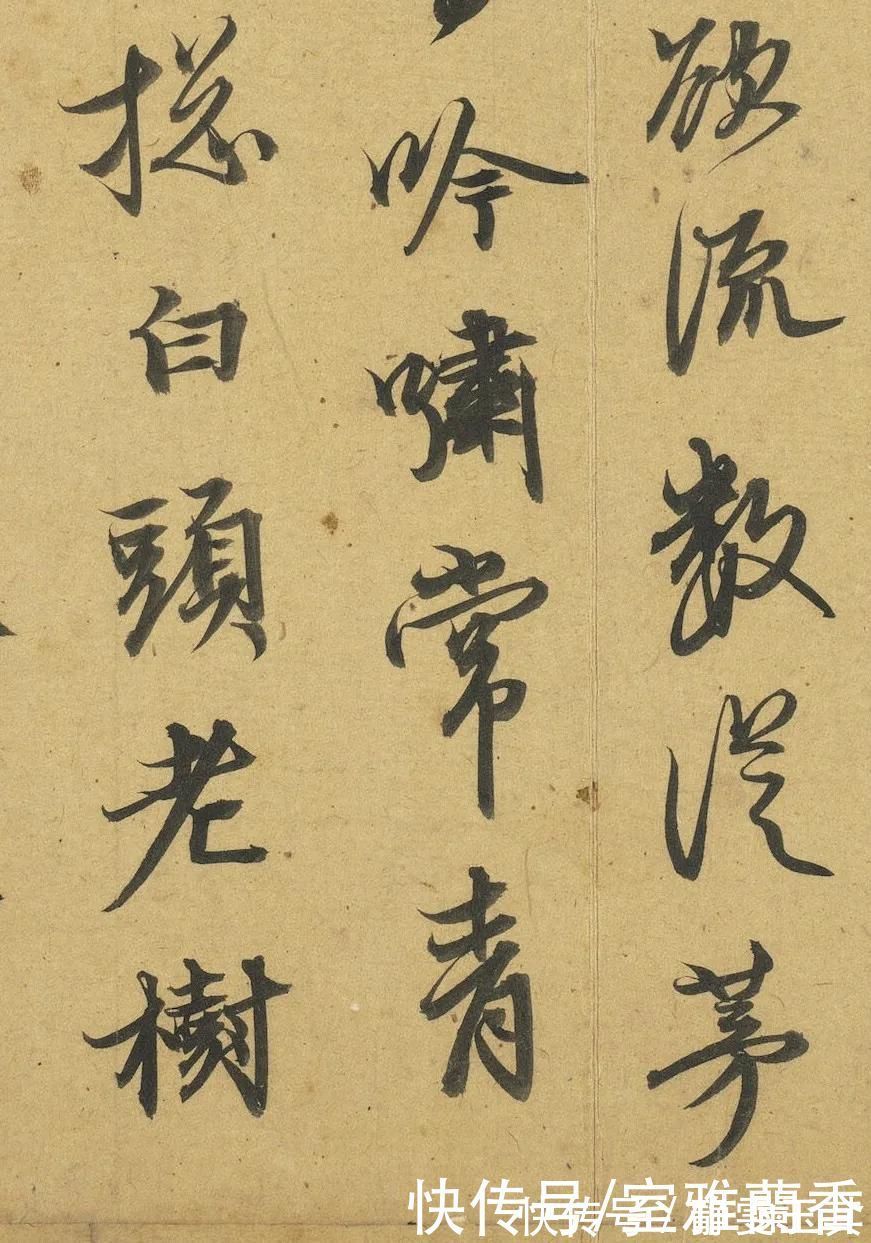 欲流數從茅
吟嘯常青
捴白頭老樹
快传号/室雅蘭香